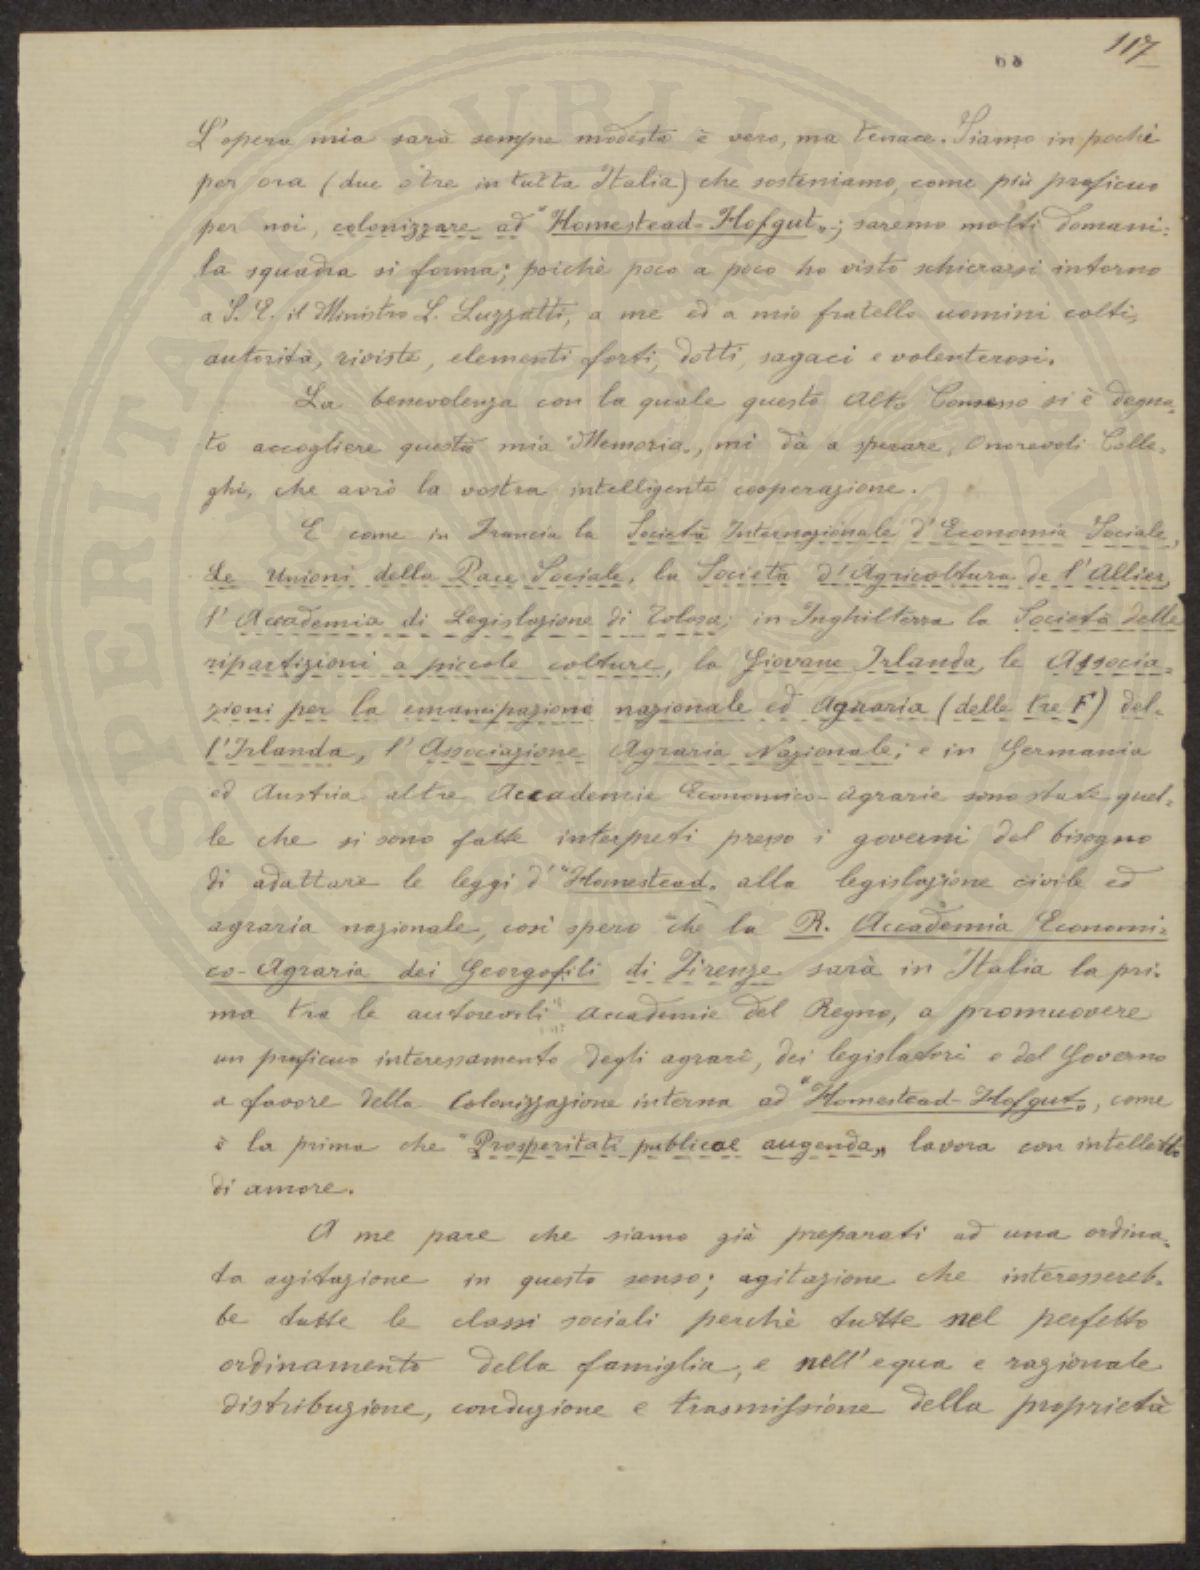 117
L'opera mia sarà sempre modesta è vero, ma tenace. Siamo in pochi
per ora (due o tre in tutta Italia) che sosteniamo, come più proficuo
per noi, colonizzare ad "Homestead-Hofgut„; saremo molti domani:
la squadra si forma; poichè poco a poco ho visto schierarsi intorno
a S. E. il Ministro L. Luzzatti, a me ed a mio fratello uomini colti,
autorità, riviste, elementi forti, dotti, sagaci e volenterosi.
La benevolenza con la quale questo Alto Consesso si è degna-
to accogliere questa mia "Memoria„, mi dà a sperare, Onorevoli Colle-
ghi, che avrò la vostra intelligente cooperazione.
E come in Francia la Società Internazionale d'Economia Sociale,
Le Unioni della Pace Sociale, la Società d'Agricoltura de l'Allier,
l'Accademia di Legislazione di Tolosa; in Inghilterra la Società delle
ripartizioni a piccole colture, la Giovane Irlanda, le Associa-
zioni per la emancipazione nazionale ed Agraria (delle tre F) del-
l'Irlanda, l'Associazione Agraria Nazionale; e in Germania
ed Austria altre Accademie Economico-agrarie sono state quel-
le che si sono fatte interpreti presso i governi del bisogno
di adattare le leggi d'"Homestead„ alla legislazione civile ed
agraria nazionale, così spero che la R. Accademia Economi-
co-Agraria dei Georgofili di Firenze sarà in Italia la pri-
ma tra le autorevoli accademie del Regno, a promuovere
un proficuo interessamento degli agrari, dei legislatori e del Governo
a favore della Colonizzazione interna ad "Homestead-Hofgut„, come
è la prima che "Prosperitati publicae augenda„ lavora con intelletto
di amore.
A me pare che siamo già preparati ad una ordina-
ta agitazione in questo senso; agitazione che interessereb-
be tutte le classi sociali perchè tutte nel perfetto
ordinamento della famiglia, e nell'equa e razionale
distribuzione, conduzione e trasmissione della proprietà